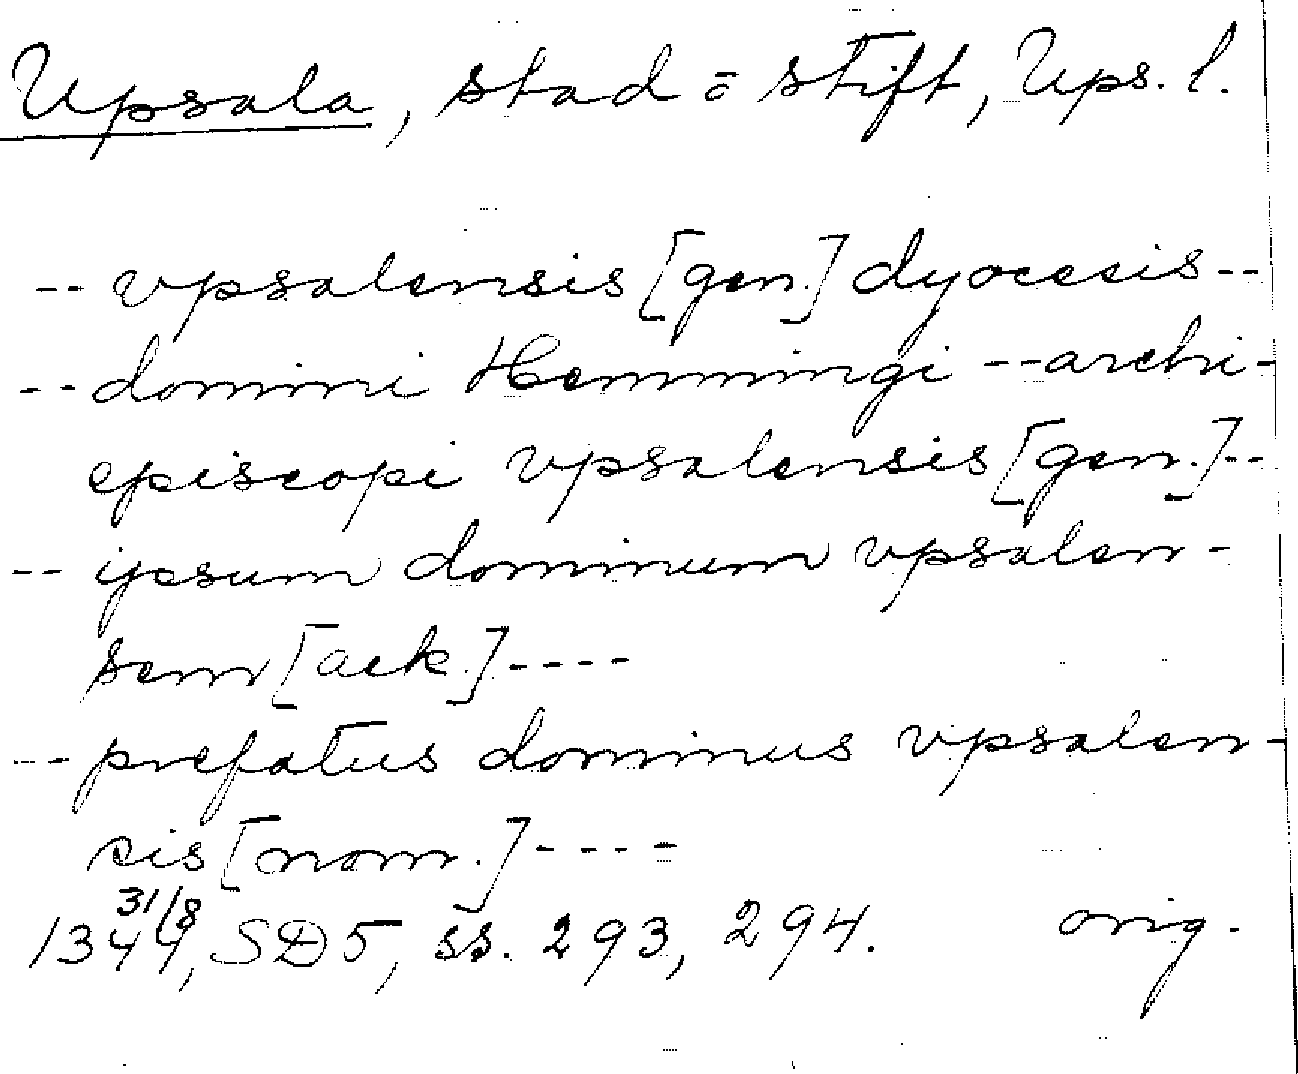 Upsala, stad = stift, Ups. l.
-- vpsalensis [gen.] dyocesis --
-- domini Hemmingi -- archi-
episcopi vpsalensis [gen.] --
-- ipsum dominum vpsalen-
sem [ack.] ----
-- prefatus dominus vpsalen-
sis [nom.] ----
31/8
1344, SD 5, ss. 293, 294. orig.